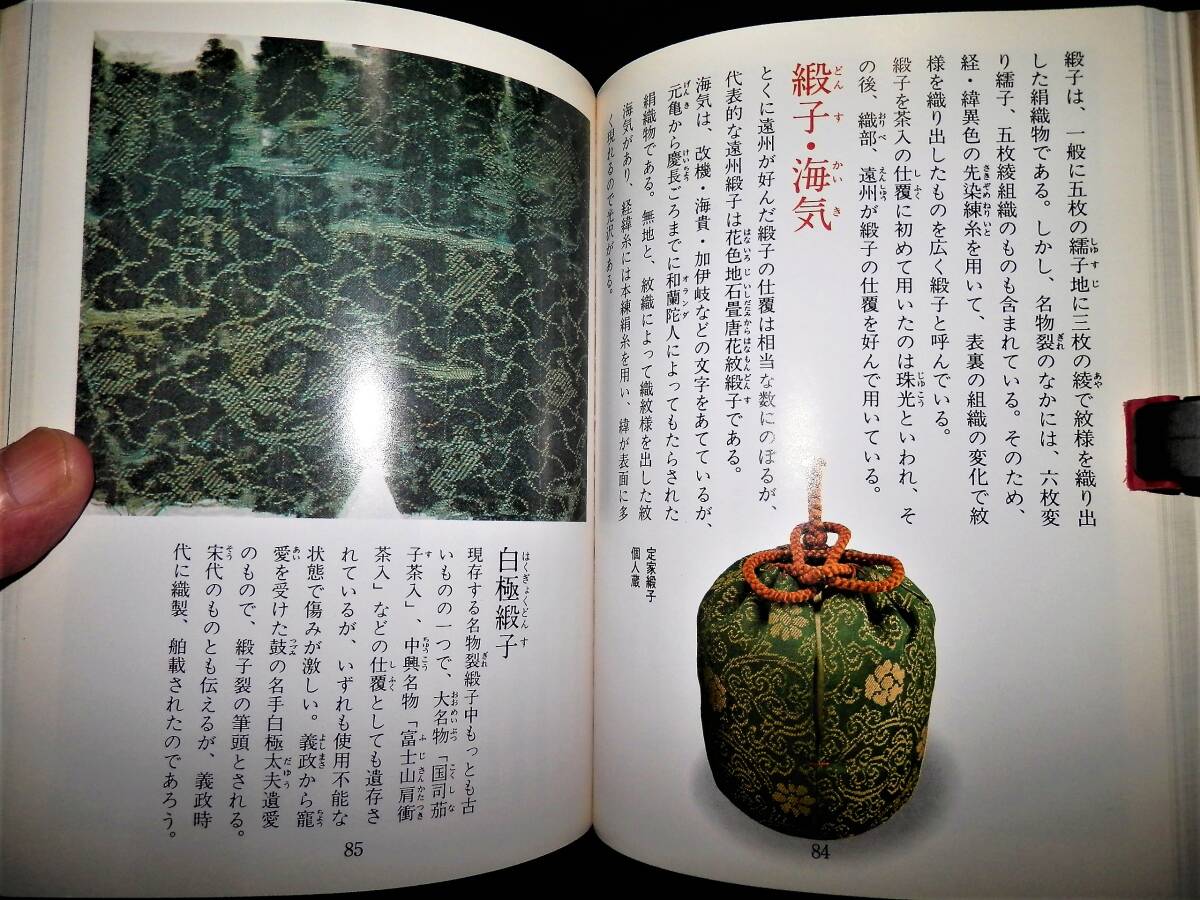 緞子は、一般に五枚の繻子地に三枚の綾で紋様を織り出
した絹織物である。しかし、名物裂のなかには、六枚変
り繻子、五枚綾組織のものも含まれている。そのため、
経・緯異色の先染練糸を用いて、表裏の組織の変化で紋
様を織り出したものを広く緞子と呼んでいる。
緞子を茶入の仕覆に初めて用いたのは珠光といわれ、そ
の後、織部、遠州が緞子の仕覆を好んで用いている。
緞子・海気
とくに遠州が好んだ緞子の仕覆は相当な数にのぼるが、
代表的な遠州緞子は花色地石畳唐花紋緞子である。
海気は、改機・海貴・加伊岐などの文字をあてているが、
元亀から慶長ごろまでに和蘭陀人によってもたらされた
絹織物である。無地と、紋織によって織紋様を出した紋
海気があり、経緯糸には本練絹糸を用い、緯が表面に多
く現れるので光沢がある。
定家緞子
個人蔵
84
白極緞子
現存する名物裂緞子中もっとも古
いものの一つで、大名物「国司茄
子茶入」、中興名物「富士山肩衝
茶入」などの仕覆としても遺存さ
れているが、いずれも使用不能な
状態で傷みが激しい。義政から寵
愛を受けた鼓の名手白極太夫遺愛
のもので、緞子裂の筆頭とされる。
宋代のものとも伝えるが、義政時
代に織製、舶載されたのであろう。
85